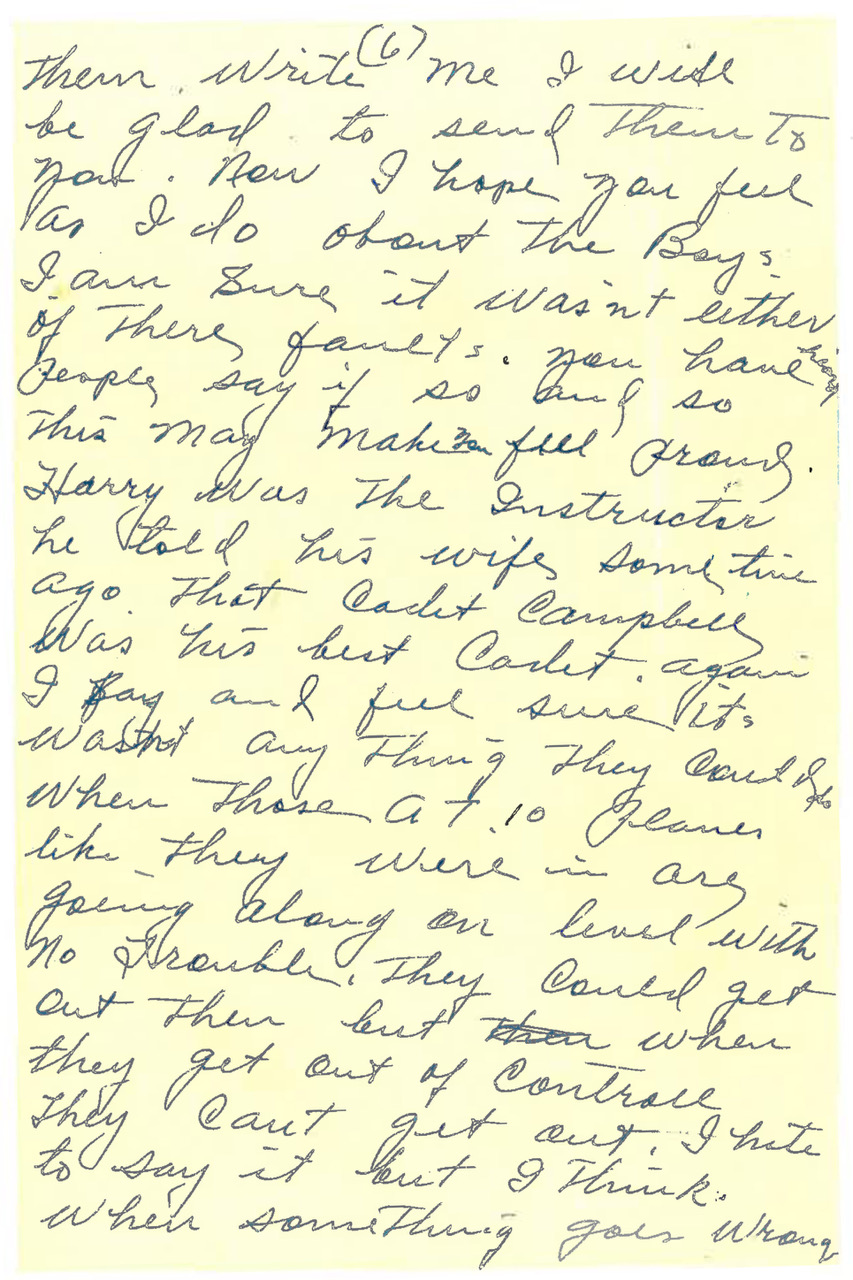 (6)
Them. Write me I will
be glad to send Them To
you. Now I hope you feel
as I do about The Boys
I am Sure it wasn't either
of There faults. you have heard
People say if so and so
This May Make you feel Proud.
Harry was The Instructor
he told his wife some time
ago That Cadet Campbell
Was his best Cadet. again
I say and feel sure its
wasnt any Thing They Could do
When Those A T. 10 Planes
like They were in are
going along on level with
No Trouble. They Could get
out Then but Then when
they get out of Controll
They Cant get out. I hate
to say it but I Think.
When someThing goes Wrong